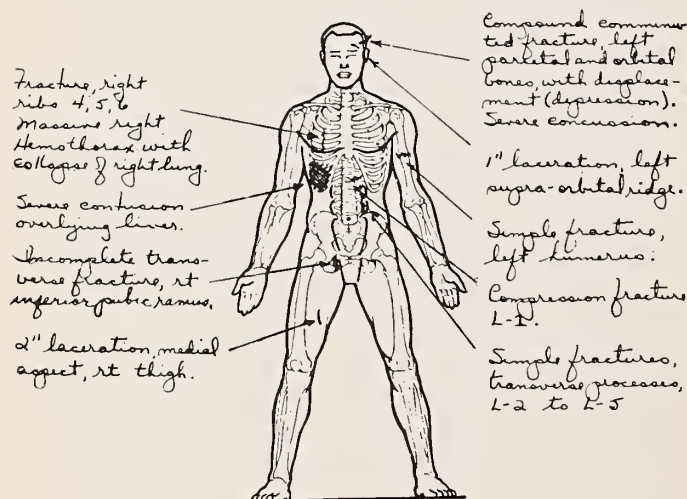 Fracture, right
ribs 4, 5, 6
Massive right
Hemothorax with
collapse of right lung.
Severe contusion
overlying liver.
Incomplete trans-
verse fracture, rt
inferior pubic ramus.
2" laceration, medial
aspect, rt thigh.
Compound comminu-
ted fracture, left
parietal and orbital
bones, with displace-
ment (depression).
Severe concussion.
1" laceration, left
supra-orbital ridge.
Simple fracture,
left humerus.
Compression fracture
L-1.
Simple fractures,
transverse processes,
L-2 to L-5